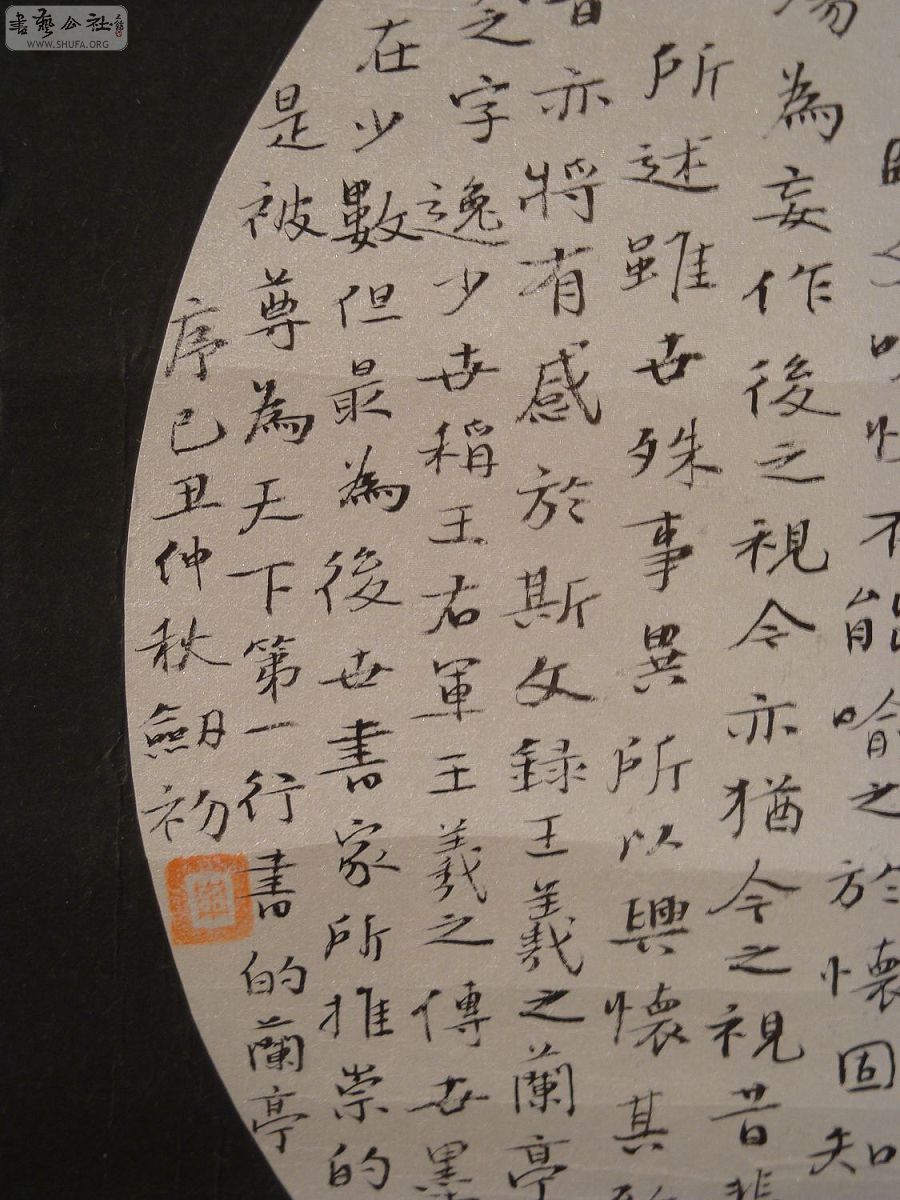 書藝公社
WWW.SHUFA.ORG
不能喻之於懷固知
為妄作後之視今亦猶今之視昔悲
所述雖世殊事異所以興懷其致
亦將有感於斯文録王羲之蘭亭
之字逸少世稱王右軍王羲之傳世墨
在少數但最為後世書家所推崇的
是被尊為天下第一行書的蘭亭
序己丑仲秋劒初